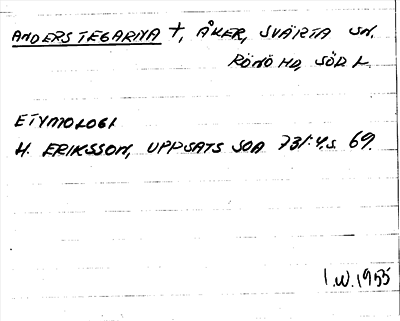 ANDERSTEGARNA †, ÅKER, SVÄRTA SN.
RÖNÖ HD, SÖD L.
ETYMOLOGI
H. ERIKSSON, UPPSATS SOA 731:4, s 69.
I.W. 1955